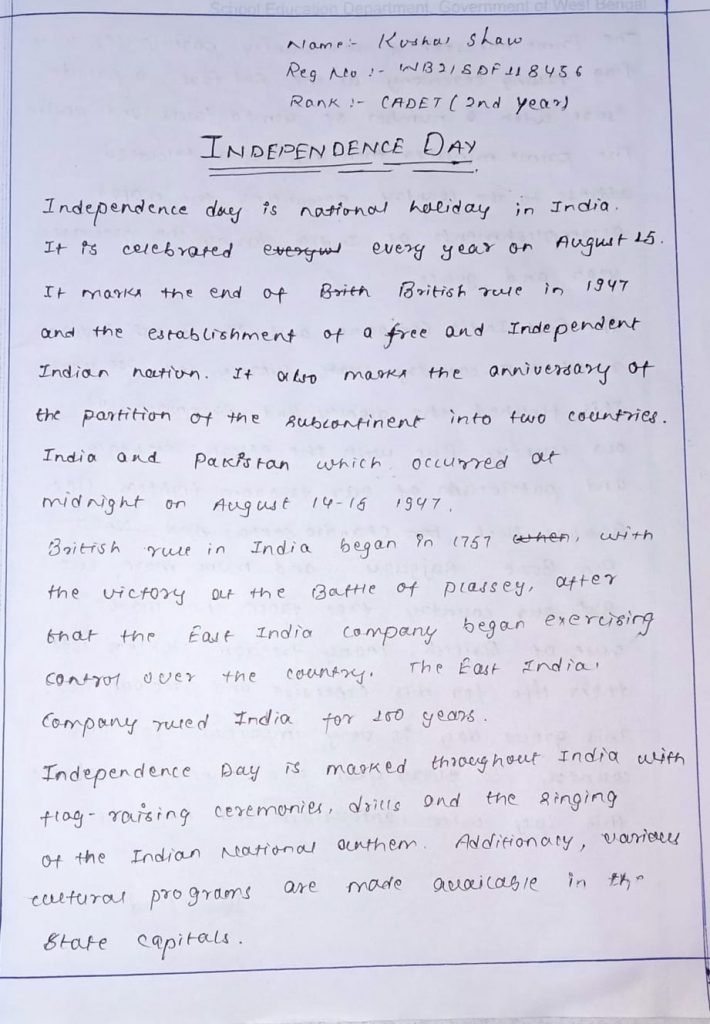 School Education Department, Government of West Bengal
Name:- Kushal Shaw
Reg No :- WB21SDF118456
Rank :- CADET (2nd year)
INDEPENDENCE DAY
Independence day is national holiday in India.
It is celebrated every year on August 15.
It marks the end of Brith British rule in 1947
and the establishment of a free and Independent
Indian nation. It also marks the anniversary of
the partition of the subcontinent into two countries.
India and Pakistan which occurred at
midnight on August 14-15 1947.
British rule in India began in 1757 when, with
the victory at the Battle of Plassey, after
that the East India Company began exercising
control over the country. The East India
Company ruled India for 100 years.
Independence Day is marked throughout India with
flag-raising ceremonies, drills and the singing
of the Indian National anthem. Additionaly, various
cultural programs are made available in the
State capitals.